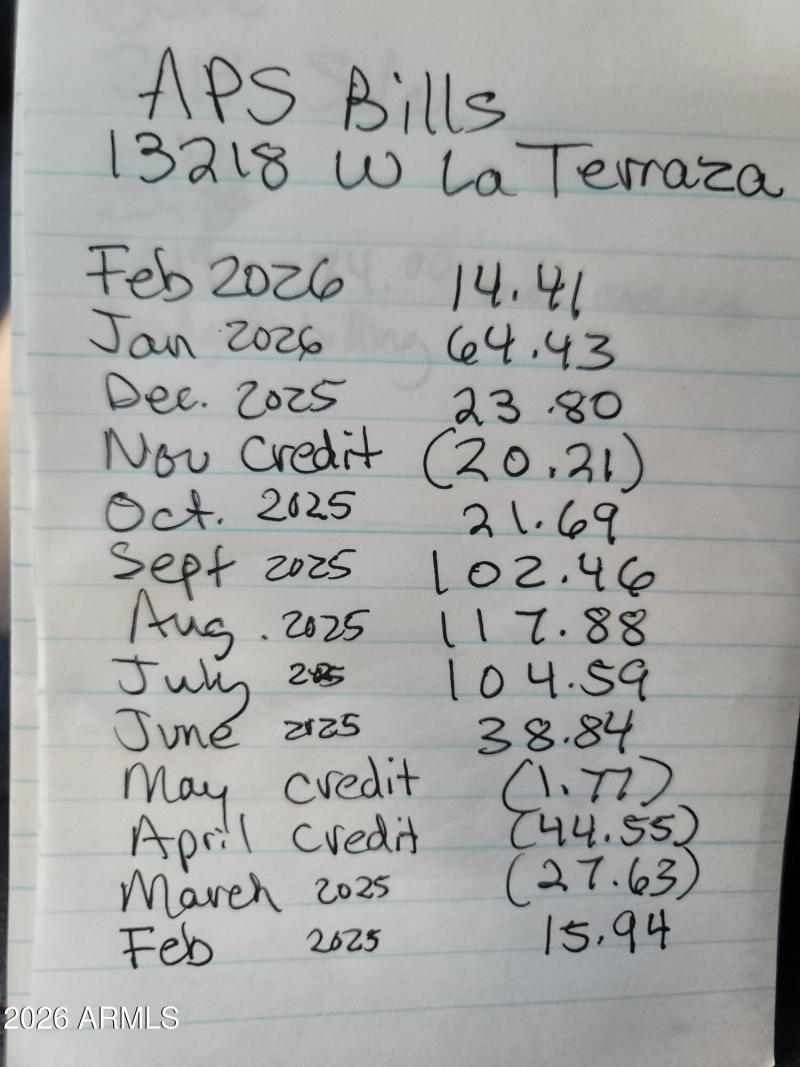 APS Bills
13218 W La Terraza
Feb 2026 14.41
Jan 2026 64.43
Dec. 2025 23.80
Nov Credit (20.21)
Oct. 2025 21.69
Sept 2025 102.46
Aug. 2025 117.88
July 2025 104.59
June 2025 38.84
May credit (1.77)
April credit (44.55)
March 2025 (27.63)
Feb 2025 15.94
2026 ARMLS